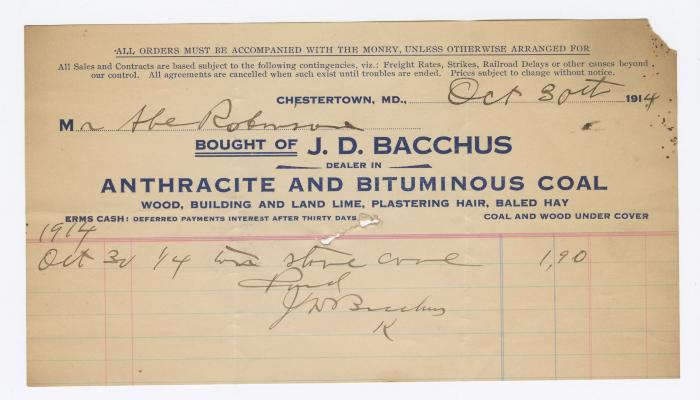 ALL ORDERS MUST BE ACCOMPANIED WITH THE MONEY, UNLESS OTHERWISE ARRANGED FOR
All Sales and Contracts are based subject to the following contingencies, viz.: Freight Rates, Strikes, Railroad Delays or other causes beyond
our control. All agreements are cancelled when such exist until troubles are ended. Prices subject to change without notice.
CHESTERTOWN, MD., Oct 30th 1914
Mr Abe Robinson
BOUGHT OF J. D. BACCHUS
DEALER IN
ANTHRACITE AND BITUMINOUS COAL
WOOD, BUILDING AND LAND LIME, PLASTERING HAIR, BALED HAY
ERMS CASH: DEFERRED PAYMENTS INTEREST AFTER THIRTY DAYS COAL AND WOOD UNDER COVER
1914
Oct 30 1/4 ton stove coal 1,90
Paid
J D Bacchus
K